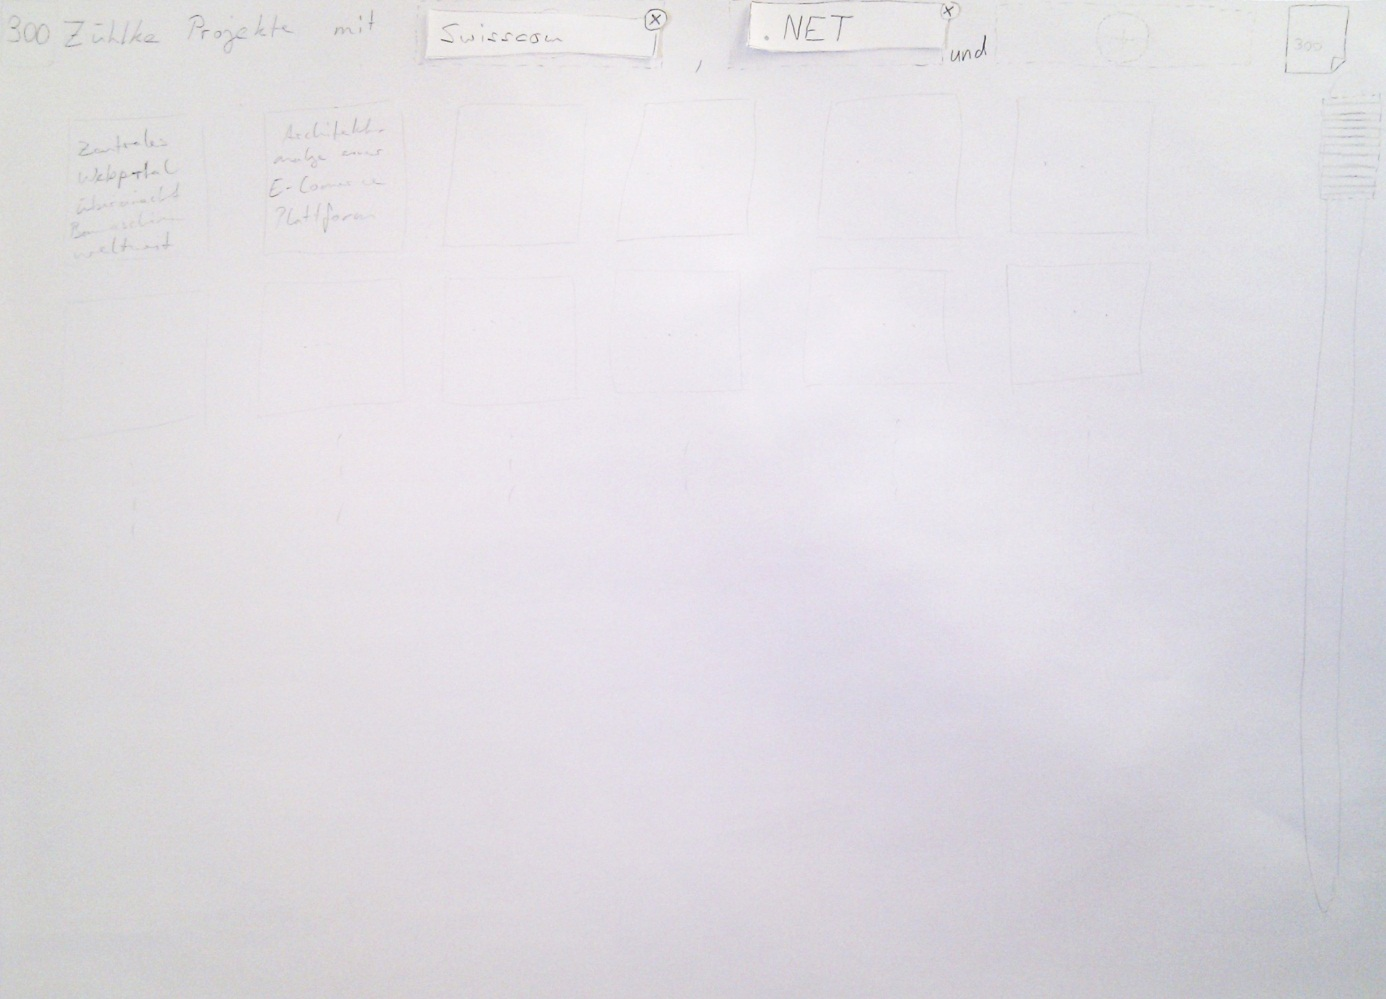 300 Zühlke Projekte mit Swisscom ⓧ , .NET ⓧ und +
300
Zentrales
Webportal
überwacht
Baumaschinen
weltweit
Architektur-
analyse einer
E-Commerce
Plattform